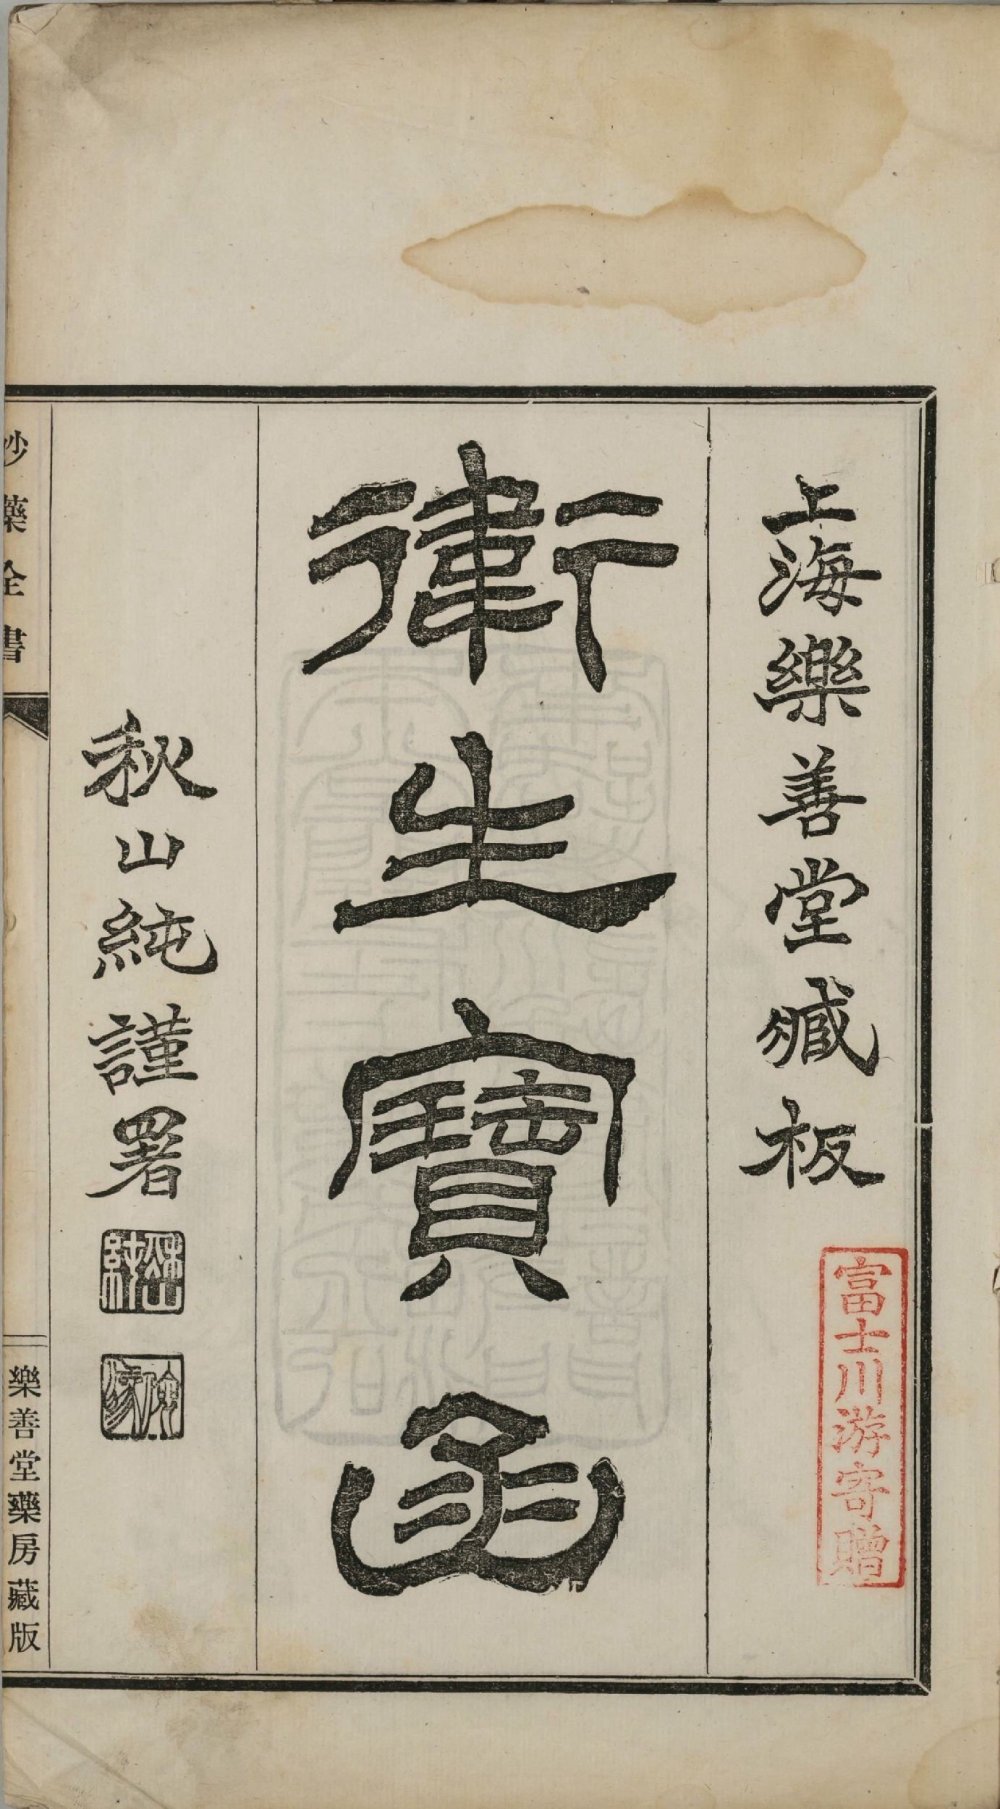 上海樂善堂臧板
富士川游寄贈
衛生寶函
秋山純謹署
妙藥全書
樂善堂藥房藏版